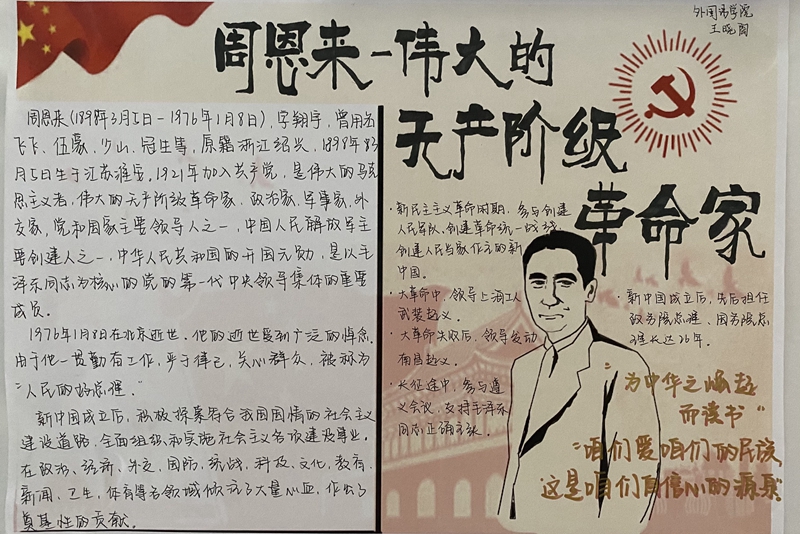 外国语学院
王晓阁
周恩来-伟大的
无产阶级
革命家
周恩来(1898年3月5日-1976年1月8日),字翔宇,曾用名
飞飞、伍豪、少山、冠生等,原籍浙江绍兴,1898年3
月5日生于江苏淮安。1921年加入共产党,是伟大的马克
思主义者,伟大的无产阶级革命家、政治家、军事家、外
交家,党和国家主要领导人之一,中国人民解放军主
要创建人之一,中华人民共和国的开国元勋,是以毛
泽东同志为核心的党的第一代中央领导集体的重要
成员。
1976年1月8日在北京逝世。他的逝世受到广泛的悼念
由于他一贯勤奋工作,严于律己,关心群众,被称为
“人民的好总理。”
新中国成立后,积极探索符合我国国情的社会主义
建设道路,全面组织和实施社会主义各项建设事业。
在政治、经济、外交、国防、统战、科技、文化、教育、
新闻、卫生、体育等各领域倾注了大量心血,作出了
奠基性的贡献。
·新民主主义革命时期,参与创建
人民军队、创建革命统一战线、
创建人民当家作主的新
中国。
·大革命中,领导上海工人
武装起义。
·大革命失败后,领导发动
南昌起义。
·长征途中,参与遵
义会议,支持毛泽东
同志正确主张。
·新中国成立后,先后担任
政务院总理、国务院总
理长达26年。
“为中华之崛起
而读书”
“咱们爱咱们的民族
这是咱们自信心的源泉”